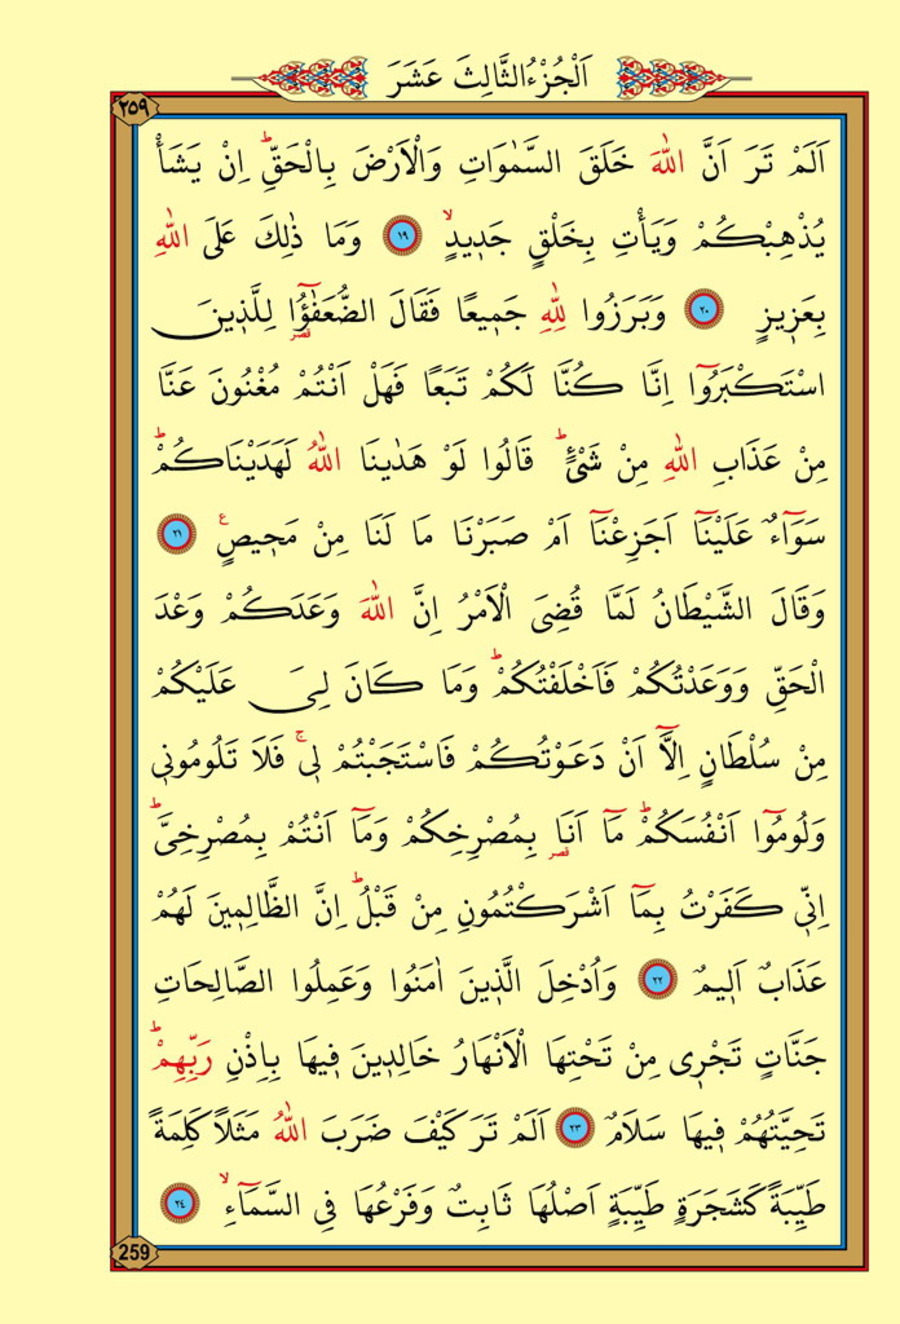 اَلْجُزْءُ الثَّالِثَ عَشَرَ
٢٥٩
اَلَمْ تَرَ اَنَّ اللّٰهَ خَلَقَ السَّمٰوَاتِ وَالْاَرْضَ بِالْحَقِّۜ اِنْ يَشَأْ
يُذْهِبْكُمْ وَيَأْتِ بِخَلْقٍ جَد۪يدٍۙ ﴿١٩﴾ وَمَا ذٰلِكَ عَلَى اللّٰهِ
بِعَز۪يزٍ ﴿٢٠﴾ وَبَرَزُوا لِلّٰهِ جَم۪يعًا فَقَالَ الضُّعَفٰٓؤُ۬ا لِلَّذ۪ينَ
اسْتَكْبَرُٓوا اِنَّا كُنَّا لَكُمْ تَبَعًا فَهَلْ اَنْتُمْ مُغْنُونَ عَنَّا
مِنْ عَذَابِ اللّٰهِ مِنْ شَيْءٍۜ قَالُوا لَوْ هَدٰينَا اللّٰهُ لَهَدَيْنَاكُمْۜ
سَوَٓاءٌ عَلَيْنَٓا اَجَزِعْنَٓا اَمْ صَبَرْنَا مَا لَنَا مِنْ مَح۪يصٍ۟ ﴿٢١﴾
وَقَالَ الشَّيْطَانُ لَمَّا قُضِيَ الْاَمْرُ اِنَّ اللّٰهَ وَعَدَكُمْ وَعْدَ
الْحَقِّ وَوَعَدْتُكُمْ فَاَخْلَفْتُكُمْۜ وَمَا كَانَ لِيَ عَلَيْكُمْ
مِنْ سُلْطَانٍ اِلَّٓا اَنْ دَعَوْتُكُمْ فَاسْتَجَبْتُمْ ل۪يۚ فَلَا تَلُومُون۪ي
وَلُومُٓوا اَنْفُسَكُمْۜ مَٓا اَنَا۬ بِمُصْرِخِكُمْ وَمَٓا اَنْتُمْ بِمُصْرِخِيَّۜ
اِنّ۪ي كَفَرْتُ بِمَٓا اَشْرَكْتُمُونِ مِنْ قَبْلُۜ اِنَّ الظَّالِم۪ينَ لَهُمْ
عَذَابٌ اَل۪يمٌ ﴿٢٢﴾ وَاُدْخِلَ الَّذ۪ينَ اٰمَنُوا وَعَمِلُوا الصَّالِحَاتِ
جَنَّاتٍ تَجْر۪ي مِنْ تَحْتِهَا الْاَنْهَارُ خَالِد۪ينَ ف۪يهَا بِاِذْنِ رَبِّهِمْۜ
تَحِيَّتُهُمْ ف۪يهَا سَلَامٌ ﴿٢٣﴾ اَلَمْ تَرَ كَيْفَ ضَرَبَ اللّٰهُ مَثَلًا كَلِمَةً
طَيِّبَةً كَشَجَرَةٍ طَيِّبَةٍ اَصْلُهَا ثَابِتٌ وَفَرْعُهَا فِي السَّمَٓاءِۙ ﴿٢٤﴾
259